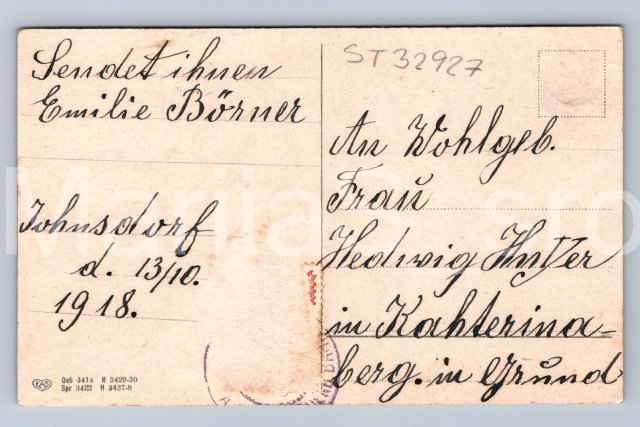 Sendet ihnen
Emilie Börner
Johnsdorf
d. 13/10.
1918.
ST32927
An Wohlgeb.
Fraŭ
Hedwig
in Kahterina-
berg. in Grŭnd
EAS
Geb 3414 H 3429-30
Spr 3422 H 3437-8